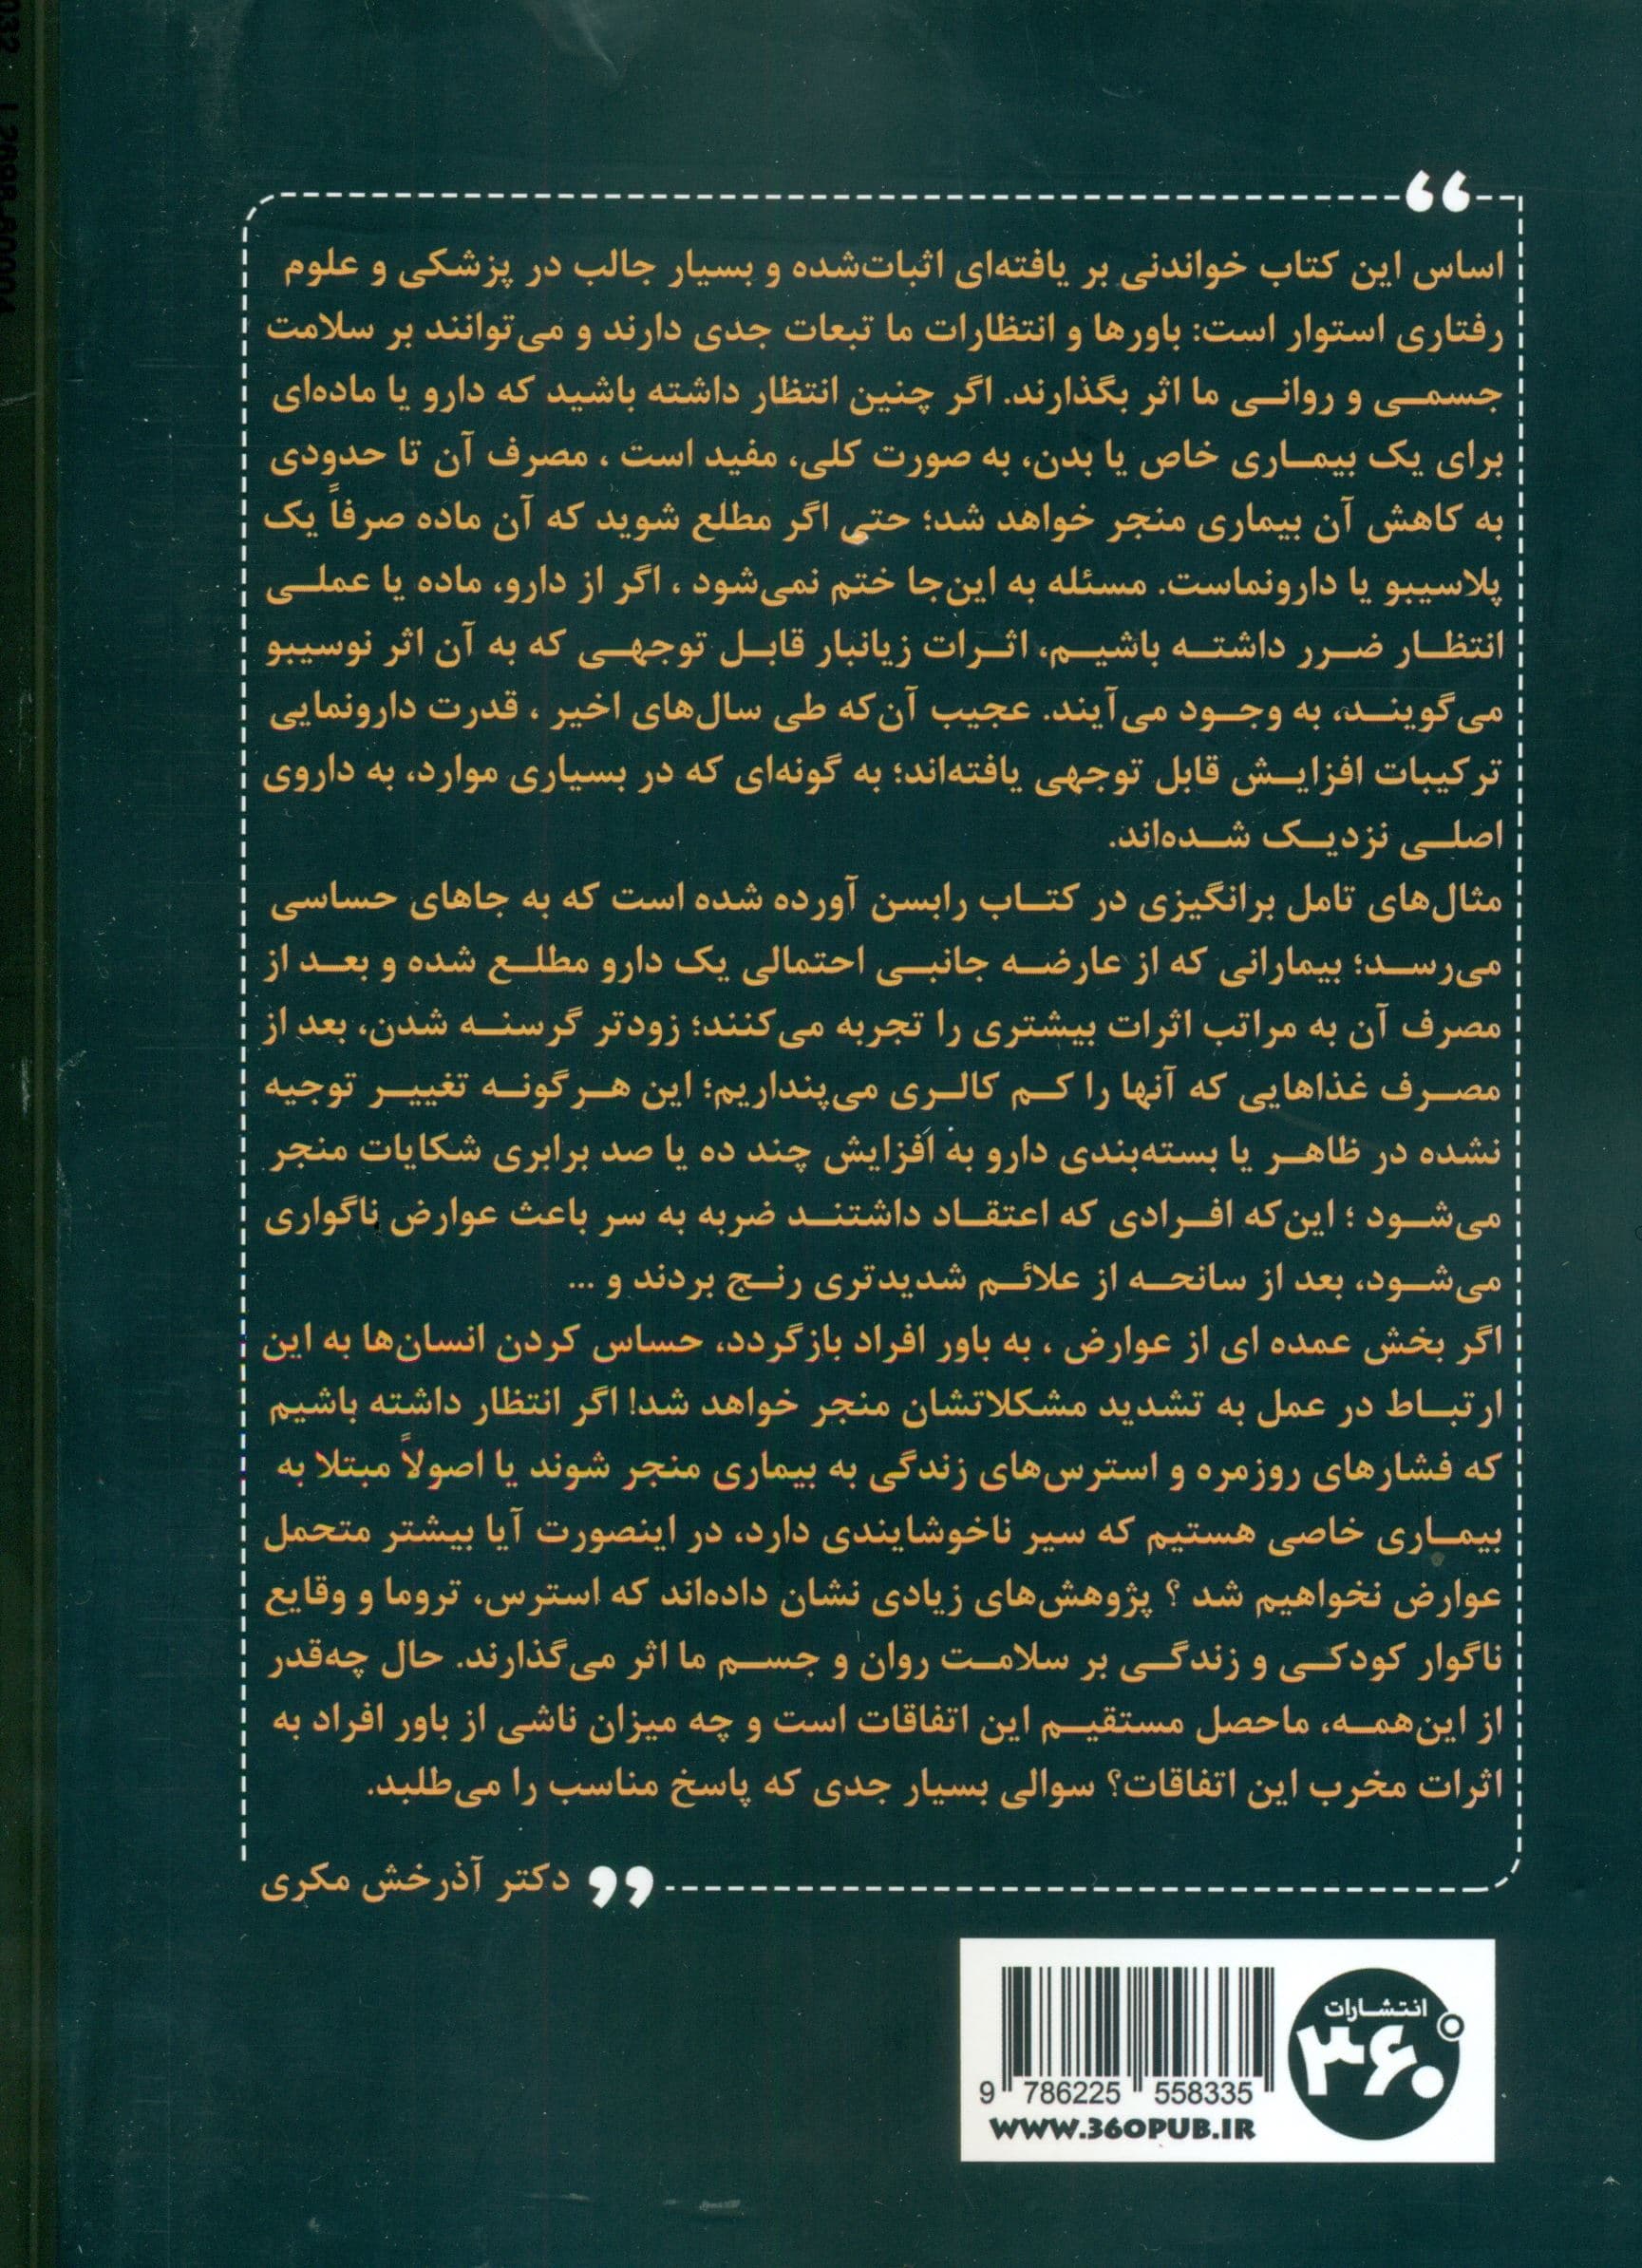 اساس این کتاب خواندنی بر یافته‌ای اثبات‌شده و بسیار جالب در پزشکی و علوم
رفتاری استوار است: باورها و انتظارات ما تبعات جدی دارند و می‌توانند بر سلامت
جسمـــی و روانـــی ما اثر بگذارند. اگر چنین انتظار داشته باشید که دارو یا ماده‌ای
برای یک بیمـــاری خاص یا بدن، به صورت کلی، مفید است ، مصرف آن تا حدودی
به کاهش آن بیماری منجر خواهد شد؛ حتی اگر مطلع شوید که آن ماده صرفاً یک
پلاسیبو یا دارونماست. مسئله به این‌جا ختم نمی‌شود ، اگر از دارو، ماده یا عملـــی
انتظـــار ضـــرر داشتـــه باشیـــم، اثـــرات زیانبار قابـــل توجهـــی که به آن اثر نوسیبو
می‌گوینـــد، به وجـــود می‌آیند. عجیب آن‌که طی سال‌های اخیر ، قدرت دارونمایی
ترکیبات افزایـــش قابل توجهی یافته‌اند؛ به گونه‌ای که در بسیاری موارد، به داروی
اصلـــی نزدیـــک شـــده‌اند.
مثال‌های تامل برانگیزی در کتـــاب رابسن آورده شده است که به جاهای حساسی
می‌رســـد؛ بیمارانی که از عارضـــه جانبـــی احتمالی یک دارو مطلـــع شده و بعـــد از
مصرف آن به مراتب اثرات بیشتری را تجربه می‌کنند؛ زودتر گرسنـــه شدن، بعد از
مصـــرف غذاهایی که آنها را کـــم کالـــری می‌پنداریم؛ این هـــرگونـــه تغییـــر توجیه
نشده در ظاهـــر یا بسته‌بندی دارو به افزایش چند ده یا صد برابری شکایات منجر
می‌شـــود ؛ این‌که افـــرادی که اعتقـــاد داشتنـــد ضربه به سر باعث عوارض ناگواری
می‌شـــود، بعد از سانحـــه از علائـــم شدیدتری رنـــج بردند و ...
اگر بخش عمده ای از عوارض ، به باور افراد بازگردد، حساس کردن انسان‌ها به این
ارتبـــاط در عمل به تشدید مشکلاتشان منجر خواهد شد! اگر انتظار داشته باشیم
که فشارهای روزمره و استرس‌های زندگی به بیماری منجر شوند یا اصولاً مبتلا به
بیمـــاری خاصی هستیم که سیر ناخوشایندی دارد، در اینصورت آیا بیشتر متحمل
عوارض نخواهیم شد ؟ پژوهش‌های زیادی نشان داده‌اند که استرس، تروما و وقایع
ناگوار کودکـــی و زندگـــی بر سلامـــت روان و جســـم ما اثر می‌گذارند. حال چه‌قدر
از این‌همـــه، ماحصل مستقیـــم این اتفاقات است و چه میزان ناشی از باور افراد به
اثرات مخرب این اتفاقات؟ سوالی بسیار جدی که پاسخ مناسب را می‌طلبد.
دکتر آذرخش مکری
انتشـــارات
۳۶۰
9 786225 558335
WWW.360PUB.IR